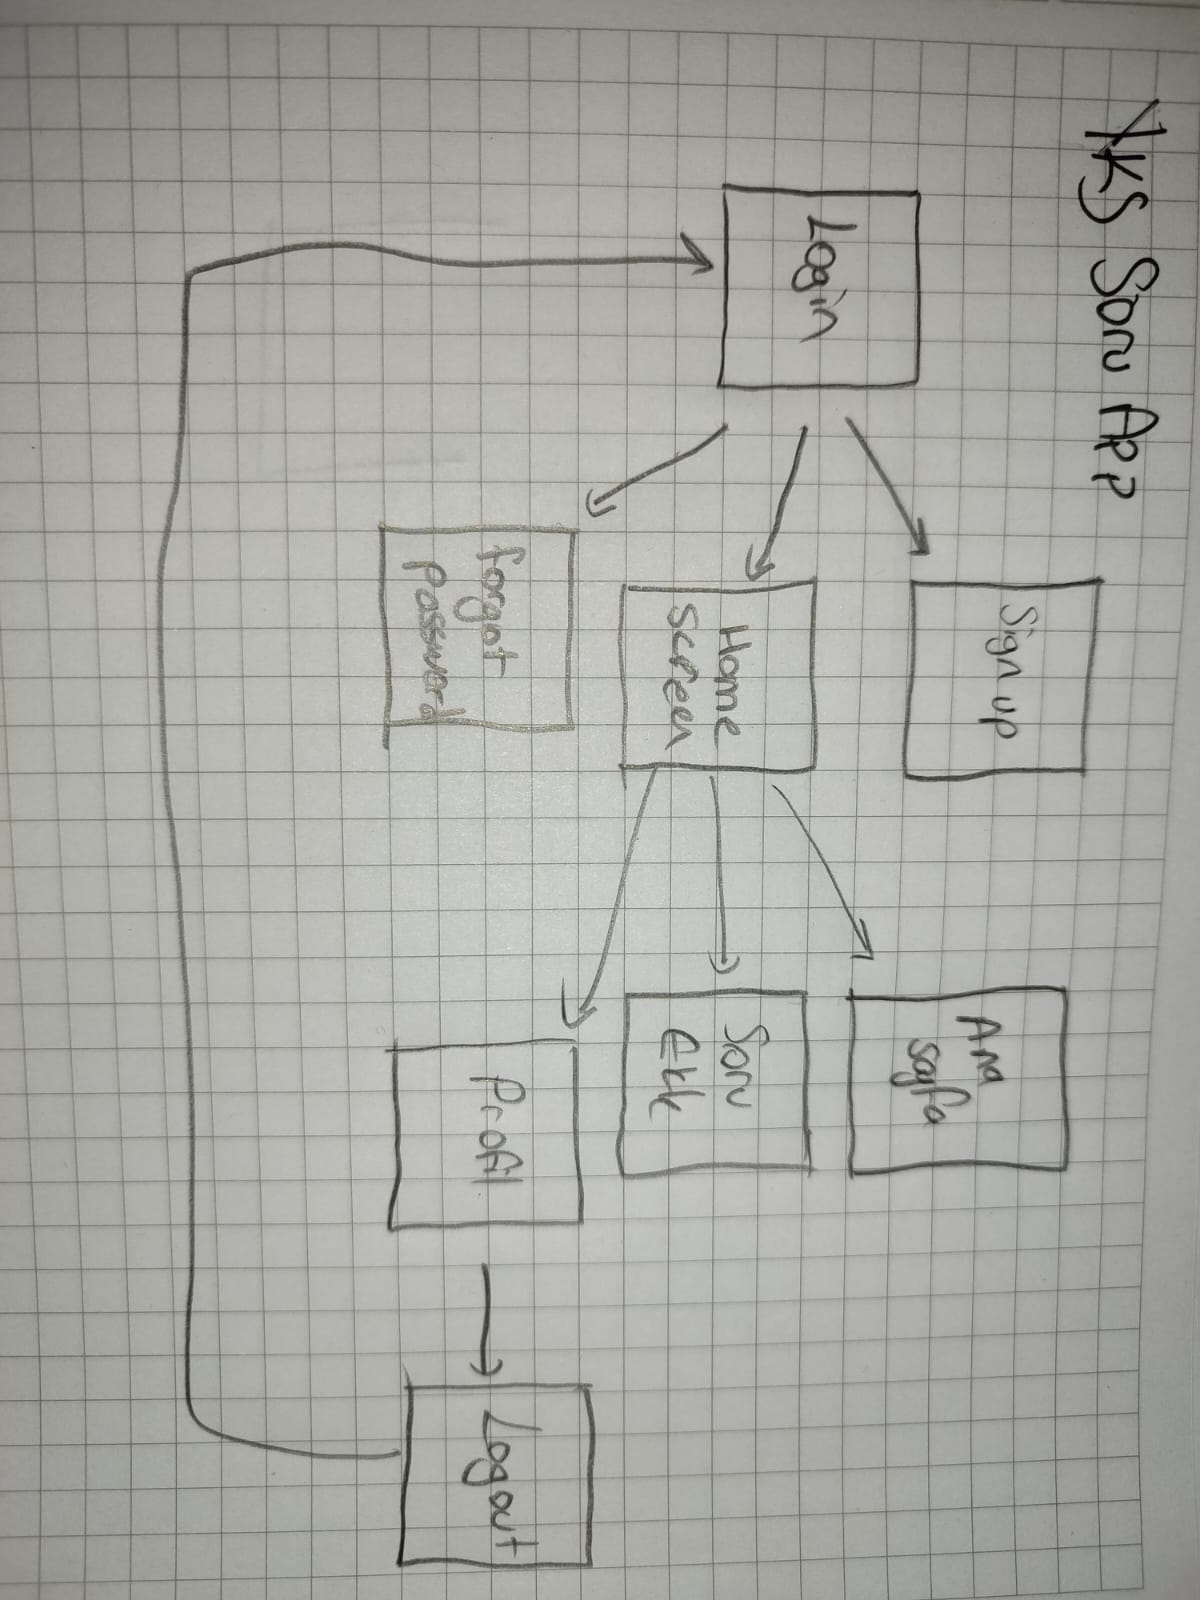 YKS Soru App
Login
Sign up
Home
screen
forgot
password
Ana
sayfa
Soru
Ekle
Profil
Logout